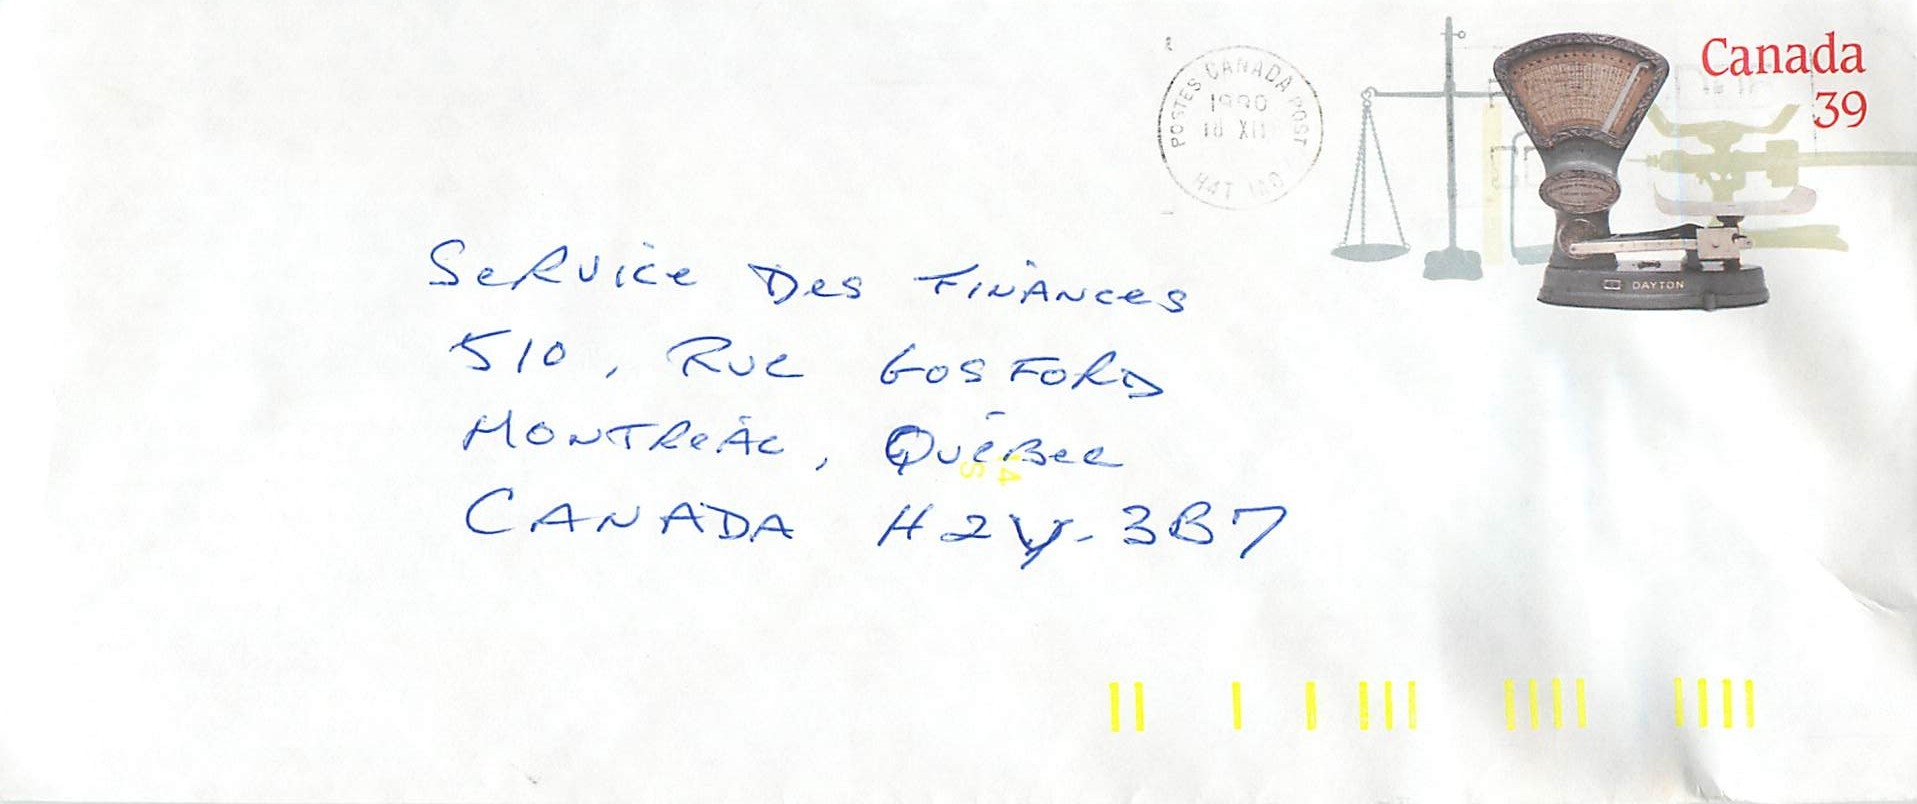 Canada
39
POSTES CANADA POST
1990
18 XII
H4T 1A0
DAYTON
SERVICE DES FINANCES
510, RUE GOSFORD
MONTREAL, QUÉBEC
CANADA H2Y-3B7
14
S